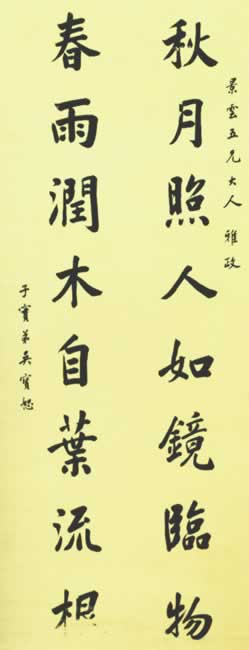 景雲五兄大人 雅政
秋月照人如鏡臨物
春雨潤木自葉流根
子實弟吳寶恕